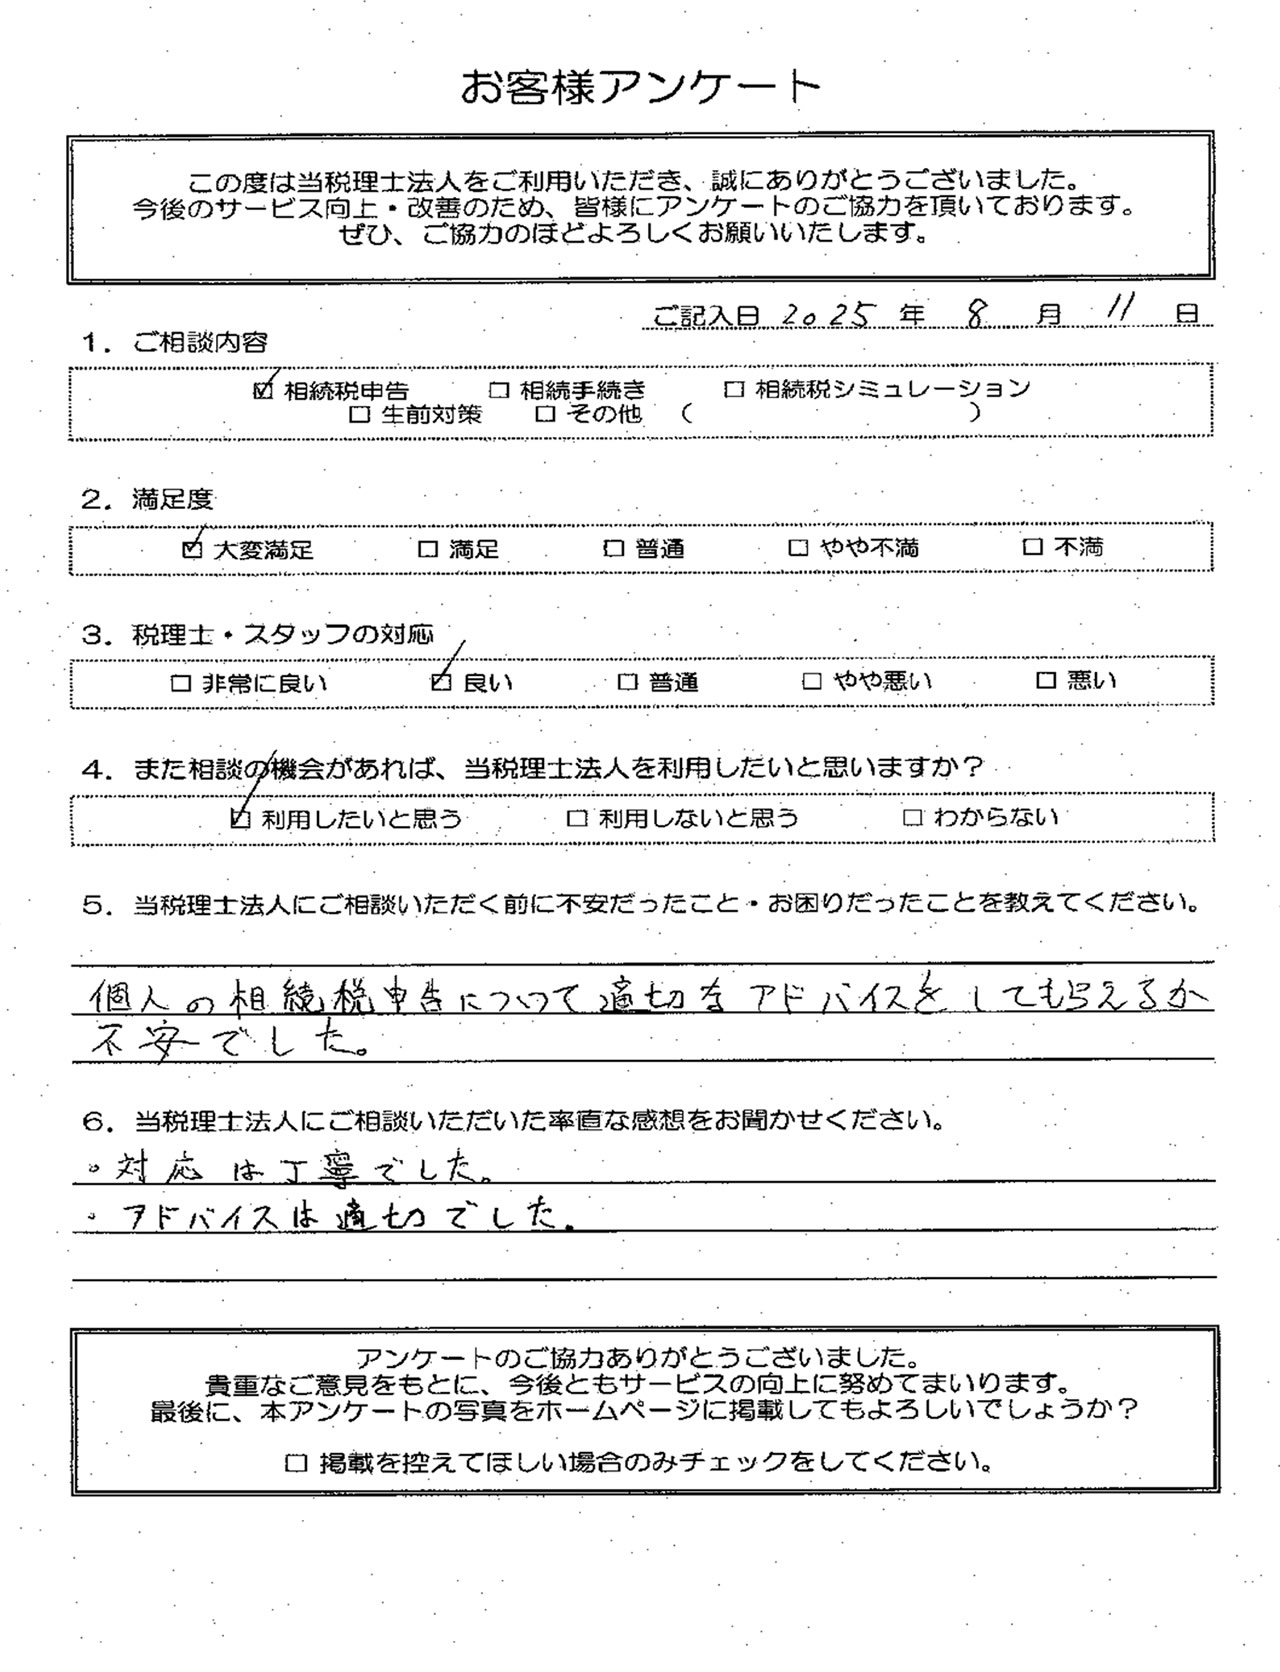 お客様アンケート
この度は当税理士法人をご利用いただき、誠にありがとうございました。
今後のサービス向上・改善のため、皆様にアンケートのご協力を頂いております。
ぜひ、ご協力のほどよろしくお願いいたします。
ご記入日 2025 年 8 月 11 日
1. ご相談内容
☑ 相続税申告 □ 相続手続き □ 相続税シミュレーション
□ 生前対策 □ その他 ( )
2. 満足度
☑ 大変満足 □ 満足 □ 普通 □ やや不満 □ 不満
3. 税理士・スタッフの対応
□ 非常に良い ☑ 良い □ 普通 □ やや悪い □ 悪い
4. また相談の機会があれば、当税理士法人を利用したいと思いますか？
☑ 利用したいと思う □ 利用しないと思う □ わからない
5. 当税理士法人にご相談いただく前に不安だったこと・お困りだったことを教えてください。
個人の相続税申告について適切なアドバイスをしてもらえるか
不安でした。
6. 当税理士法人にご相談いただいた率直な感想をお聞かせください。
・対応は丁寧でした。
・アドバイスは適切でした。
アンケートのご協力ありがとうございました。
貴重なご意見をもとに、今後ともサービスの向上に努めてまいります。
最後に、本アンケートの写真をホームページに掲載してもよろしいでしょうか？
□ 掲載を控えてほしい場合のみチェックをしてください。